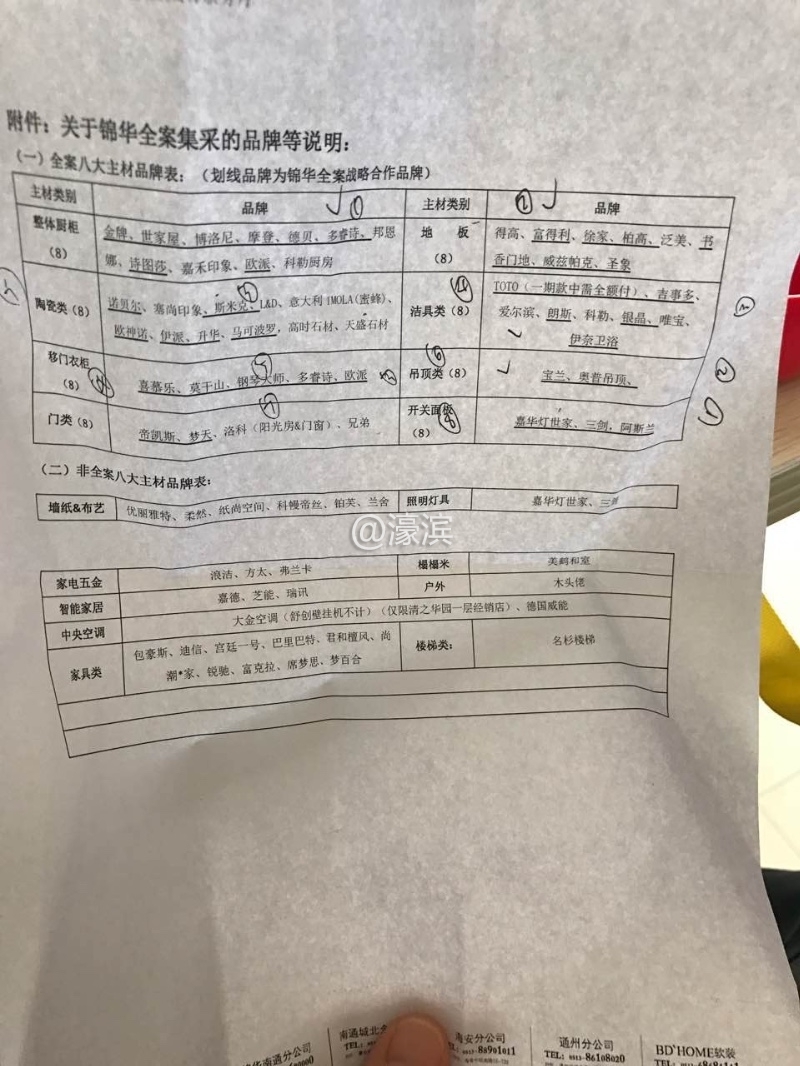 附件：关于锦华全案集采的品牌等说明：
（一）全案八大主材品牌表：（划线品牌为锦华全案战略合作品牌）
主材类别 品牌 ① 主材类别 ② 品牌
整体厨柜（8） 金牌、世家屋、博洛尼、摩登、德贝、多睿诗、邦恩
娜、诗图莎、嘉禾印象、欧派、科勒厨房
地 板（8） 得高、富得利、徐家、柏高、泛美、书
香门地、威兹帕克、圣象
陶瓷类（8） 诺贝尔、塞尚印象、斯米克、L&D、意大利IMOLA(蜜蜂)、
欧神诺、伊派、升华、马可波罗，高时石材、天盛石材
洁具类（8） TOTO（一期款中需全额付）、吉事多、
爱尔滨、朗斯、科勒、银晶、唯宝、
伊奈卫浴
移门衣柜
（8） 喜慕乐、莫干山、钢琴大师、多睿诗、欧派
吊顶类（8） 宝兰、奥普吊顶、
门类（8） 帝凯斯、梦天、洛科（阳光房&门窗）、兄弟
开关面板
（8） 嘉华灯世家、三剑，阿斯兰
（二）非全案八大主材品牌表：
墙纸&布艺 优丽雅特、柔然、纸尚空间、科幔帝丝、铂芙、兰舍 照明灯具 嘉华灯世家、三剑
@濠滨
家电五金 浪洁、方太、弗兰卡 榻榻米 美鹤和室
智能家居 嘉德、芝能、瑞讯 户外 木头佬
中央空调 大金空调（舒创壁挂机不计）（仅限清之华园一层经销店）、德国威能
家具类 包豪斯、迪信、宫廷一号、巴里巴特、君和檀风、尚
潮*家、锐驰、富克拉、席梦思，梦百合
楼梯类： 名杉楼梯
南通分公司
南通城北
TEL:
海安分公司
88901011
通州分公司
TEL: 0513-86108020
BD`HOME软装